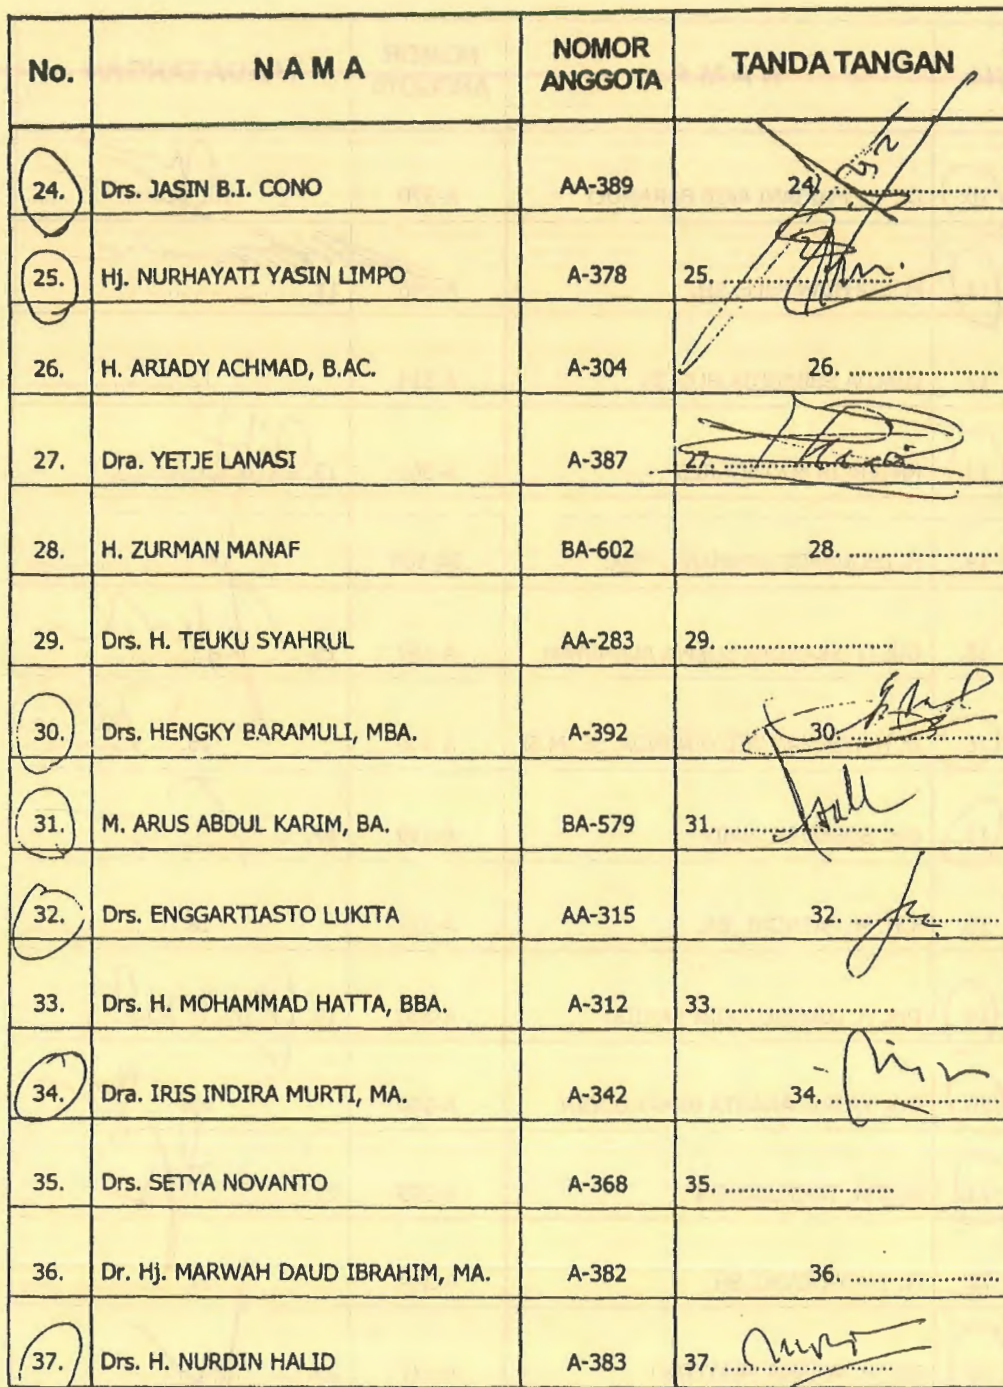 No. NAMA NOMOR ANGGOTA TANDA TANGAN
24. Drs. JASIN B.I. CONO AA-389 24. ....................
25. Hj. NURHAYATI YASIN LIMPO A-378 25. ....................
26. H. ARIADY ACHMAD, B.AC. A-304 26. ....................
27. Dra. YETJE LANASI A-387 27. ....................
28. H. ZURMAN MANAF BA-602 28. ....................
29. Drs. H. TEUKU SYAHRUL AA-283 29. ....................
30. Drs. HENGKY BARAMULI, MBA. A-392 30. ....................
31. M. ARUS ABDUL KARIM, BA. BA-579 31. ....................
32. Drs. ENGGARTIASTO LUKITA AA-315 32. ....................
33. Drs. H. MOHAMMAD HATTA, BBA. A-312 33. ....................
34. Dra. IRIS INDIRA MURTI, MA. A-342 34. ....................
35. Drs. SETYA NOVANTO A-368 35. ....................
36. Dr. Hj. MARWAH DAUD IBRAHIM, MA. A-382 36. ....................
37. Drs. H. NURDIN HALID A-383 37. ....................